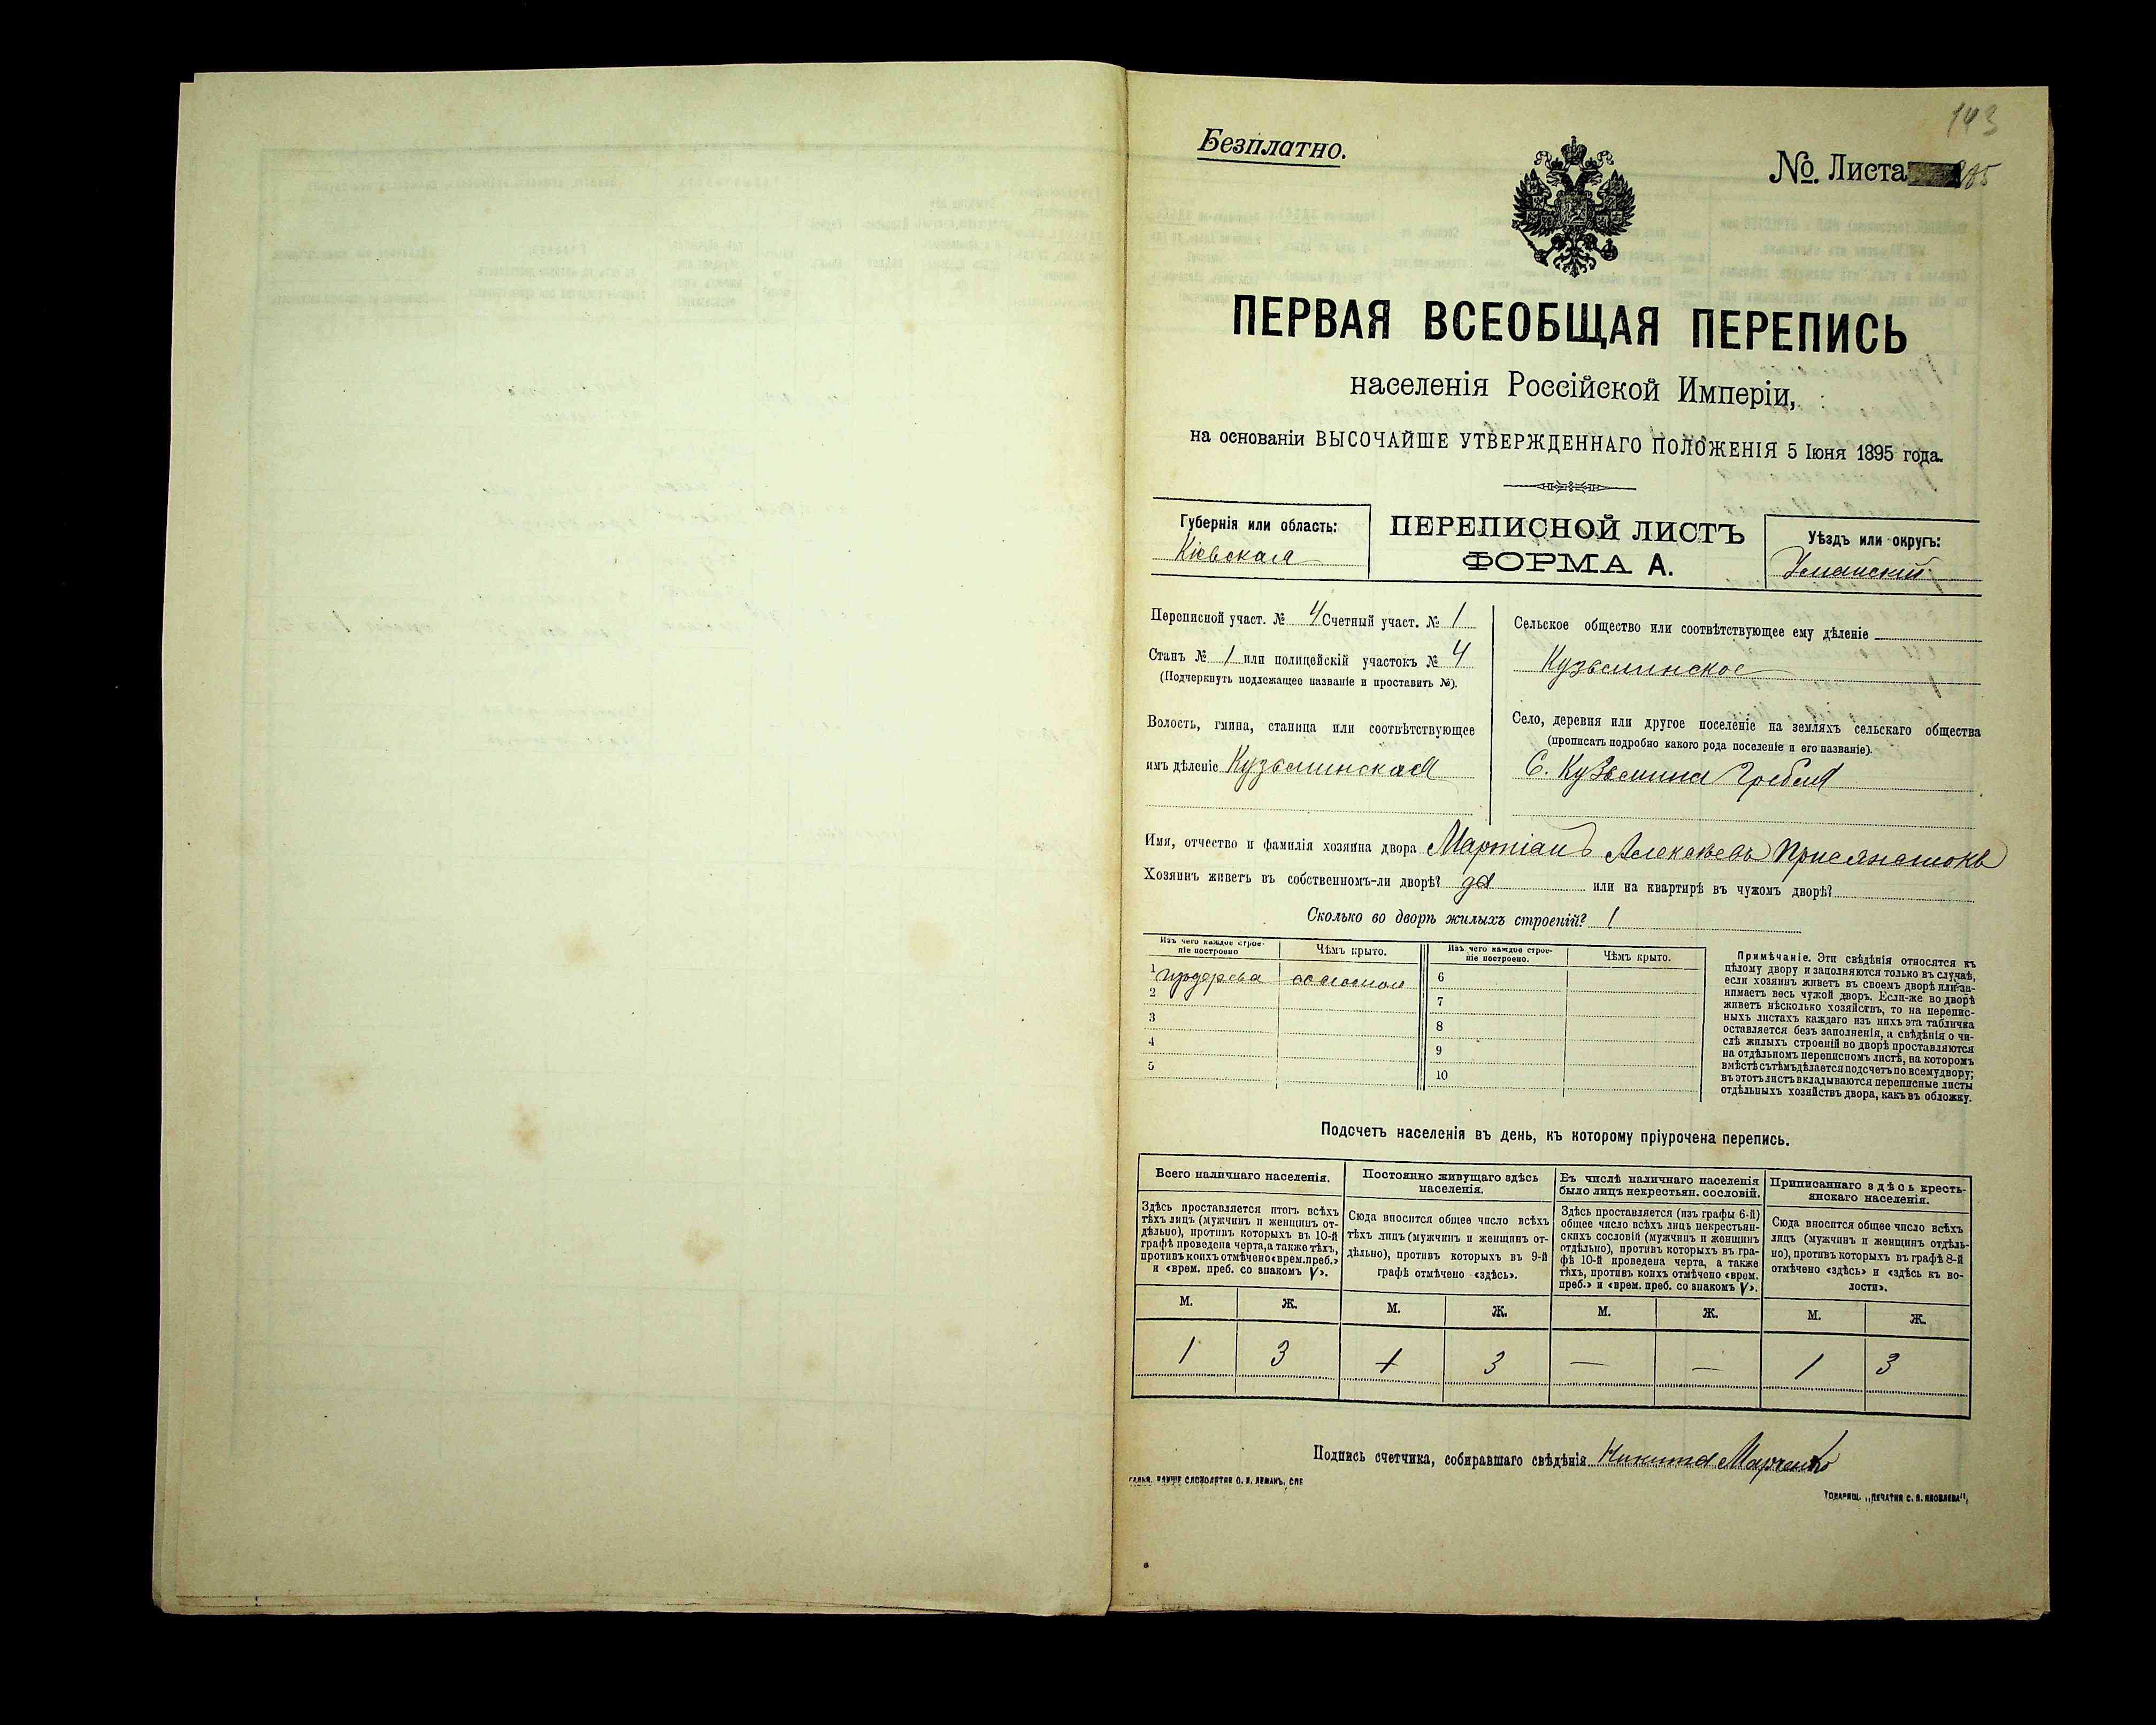 143
Безплатно.
№ Листа 285
ПЕРВАЯ ВСЕОБЩАЯ ПЕРЕПИСЬ
населенія Россійской Имперіи,
на основаніи ВЫСОЧАЙШЕ УТВЕРЖДЕННАГО ПОЛОЖЕНІЯ 5 Іюня 1895 года.
Губернія или область:
Кіевская
ПЕРЕПИСНОЙ ЛИСТЪ
ФОРМА А.
Уѣздъ или округъ:
Уманскій
Переписной участ. № 4 Счетный участ. № 1
Станъ № 1 или полицейскій участокъ № 4
(Подчеркнуть подлежащее названіе и проставить №).
Волость, гмина, станица или соотвѣтствующее
имъ дѣленіе Кузьминская
Сельское общество или соотвѣтствующее ему дѣленіе
Кузьминское
Село, деревня или другое поселеніе на земляхъ сельскаго общества
(прописать подробно какого рода поселеніе и его названіе).
С. Кузьмина Гребля
Имя, отчество и фамилія хозяина двора Мартіанъ Алексѣевъ
Хозяинъ живетъ въ собственномъ-ли дворѣ? да или на квартирѣ въ чужомъ дворѣ?
Сколько во дворѣ жилыхъ строеній? 1
Изъ чего каждое строе-
ніе построено
Чѣмъ крыто.
Изъ чего каждое строе-
ніе построено.
Чѣмъ крыто.
1 изъ дерева соломой
2
3
4
5
6
7
8
9
10
Примѣчаніе. Эти свѣдѣнія относятся къ
цѣлому двору и заполняются только въ случаѣ,
если хозяинъ живетъ въ своемъ дворѣ или за-
нимаетъ весь чужой дворъ. Если-же во дворѣ
живетъ нѣсколько хозяйствъ, то на перепис-
ныхъ листахъ каждаго изъ нихъ эта табличка
оставляется безъ заполненія, а свѣдѣнія о чи-
слѣ жилыхъ строеній во дворѣ проставляются
на отдѣльномъ переписномъ листѣ, на которомъ
вмѣстѣ съ тѣмъ дѣлается подсчетъ по всему двору;
въ этотъ листъ вкладываются переписные листы
отдѣльныхъ хозяйствъ двора, какъ въ обложку.
Подсчетъ населенія въ день, къ которому пріурочена перепись.
Всего наличнаго населенія.
Здѣсь проставляется итогъ всѣхъ
тѣхъ лицъ (мужчинъ и женщинъ от-
дѣльно), противъ которыхъ въ 10-й
графѣ проведена черта, а также тѣхъ,
противъ коихъ отмѣчено «врем. преб.»
и «врем. преб. со знакомъ V».
Постоянно живущаго здѣсь
населенія.
Сюда вносится общее число всѣхъ
тѣхъ лицъ (мужчинъ и женщинъ от-
дѣльно), противъ которыхъ въ 9-й
графѣ отмѣчено «здѣсь».
Въ числѣ наличнаго населенія
было лицъ некрестьян. сословій.
Здѣсь проставляется (изъ графы 6-й)
общее число всѣхъ лицъ некрестьян-
скихъ сословій (мужчинъ и женщинъ
отдѣльно), противъ которыхъ въ гра-
фѣ 10-й проведена черта, а также
тѣхъ, противъ коихъ отмѣчено «врем.
преб.» и «врем. преб. со знакомъ V».
Приписаннаго здѣсь кресть-
янскаго населенія.
Сюда вносится общее число всѣхъ
лицъ (мужчинъ и женщинъ отдѣль-
но), противъ которыхъ въ графѣ 8-й
отмѣчено «здѣсь» и «здѣсь къ во-
лости».
М. Ж. М. Ж. М. Ж. М. Ж.
1 3 1 3 — — 1 3
Подпись счетчика, собиравшаго свѣдѣнія Никита Марченко
ТОВАРИЩ. „ПЕЧАТНЯ С. П. ЯКОВЛЕВА“,